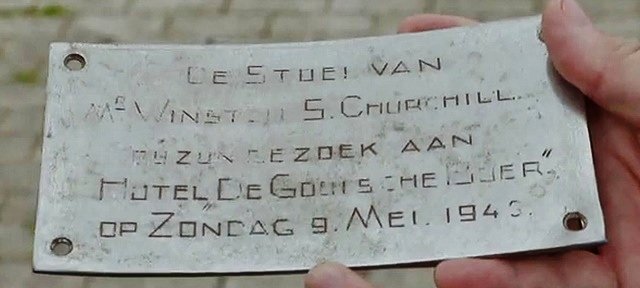 DE STOEL VAN
MR WINSTON S. CHURCHILL.
BIJ ZIJN BEZOEK AAN
HOTEL „DE GOUDSCHE BOER"
OP ZONDAG 9. MEI. 1948.